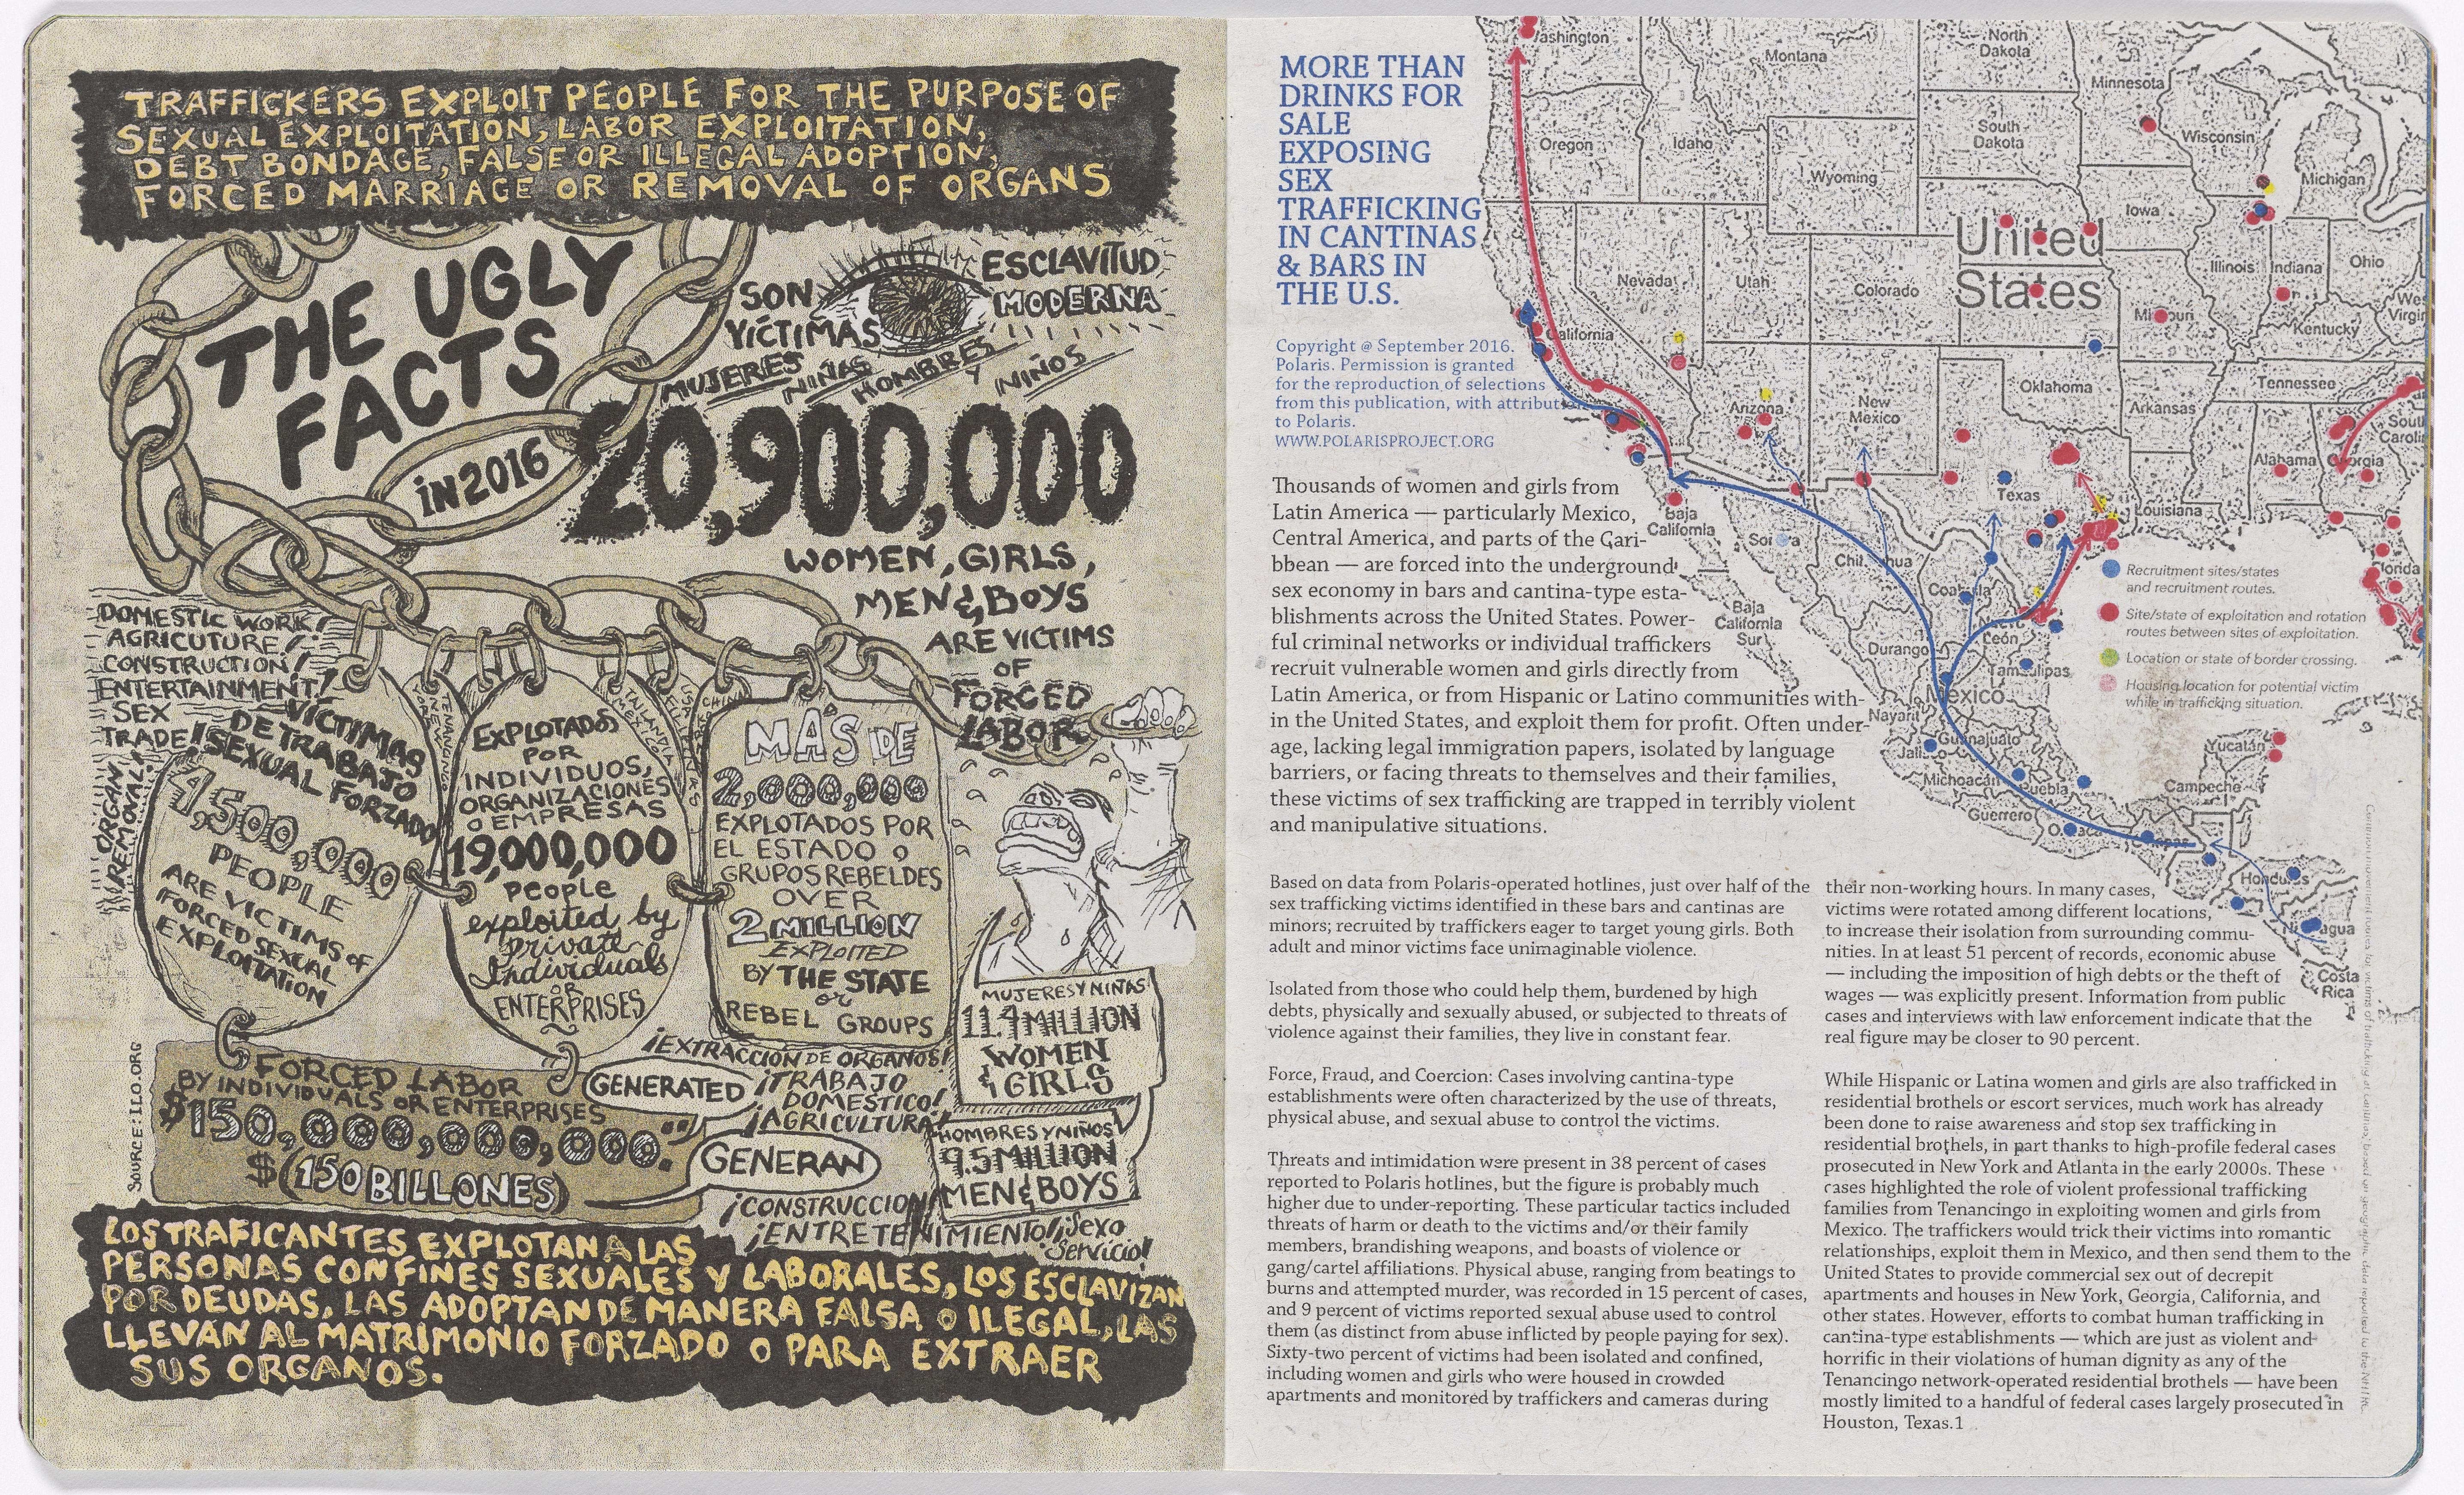 TRAFFICKERS EXPLOIT PEOPLE FOR THE PURPOSE OF
SEXUAL EXPLOITATION, LABOR EXPLOITATION,
DEBT BONDAGE, FALSE OR ILLEGAL ADOPTION,
FORCED MARRIAGE OR REMOVAL OF ORGANS
THE UGLY
FACTS
iN 2016
SON
VÍCTIMAS
ESCLAVITUD
MODERNA
MUJERES
NIÑAS
HOMBRES
Y NIÑOS
20,900,000
WOMEN, GIRLS,
MEN & BOYS
ARE VICTIMS
OF
FORCED
LABOR
DOMESTIC WORK!
AGRICUTURE!
CONSTRUCTION!
ENTERTAINMENT!
SEX
TRADE!
ORGAN
REMOVAL!
VÍCTIMAS
DE TRABAJO
SEXUAL FORZADO
1,500,000
PEOPLE
ARE VICTIMS OF
FORCED SEXUAL
EXPLOITATION
TENANCINGO
EXPLOTADOS
POR
INDIVIDUOS,
ORGANIZACIONES
O EMPRESAS
19,000,000
people
exploited by
private
Individuals
OR
ENTERPRISES
TAILANDIA
MEXICO
MAS DE
2,000,000
EXPLOTADOS POR
EL ESTADO O
GRUPOS REBELDES
OVER
2 MILLION
EXPLOITED
BY THE STATE
or
REBEL GROUPS
MUJERES Y NIÑAS
11.4 MILLION
WOMEN
& GIRLS
HOMBRES Y NIÑOS
9.5 MILLION
MEN & BOYS
SOURCE: ILO.ORG
FORCED LABOR
BY INDIVIDUALS OR ENTERPRISES
$150,000,000,000.00
$(150 BILLONES)
GENERATED
GENERAN
¡EXTRACCIÓN DE ORGANOS!
¡TRABAJO
DOMESTICO!
¡AGRICULTURA!
¡CONSTRUCCION!
¡ENTRETENIMIENTO! ¡Sexo
Servicio!
LOS TRAFICANTES EXPLOTAN A LAS
PERSONAS CON FINES SEXUALES Y LABORALES, LOS ESCLAVIZAN
POR DEUDAS, LAS ADOPTAN DE MANERA FALSA O ILEGAL, LAS
LLEVAN AL MATRIMONIO FORZADO O PARA EXTRAER
SUS ORGANOS.
MORE THAN
DRINKS FOR
SALE
EXPOSING
SEX
TRAFFICKING
IN CANTINAS
& BARS IN
THE U.S.
Copyright @ September 2016.
Polaris. Permission is granted
for the reproduction of selections
from this publication, with attribut
to Polaris.
WWW.POLARISPROJECT.ORG
Thousands of women and girls from
Latin America — particularly Mexico,
Central America, and parts of the Cari-
bbean — are forced into the underground
sex economy in bars and cantina-type esta-
blishments across the United States. Power-
ful criminal networks or individual traffickers
recruit vulnerable women and girls directly from
Latin America, or from Hispanic or Latino communities with-
in the United States, and exploit them for profit. Often under-
age, lacking legal immigration papers, isolated by language
barriers, or facing threats to themselves and their families,
these victims of sex trafficking are trapped in terribly violent
and manipulative situations.
Based on data from Polaris-operated hotlines, just over half of the
sex trafficking victims identified in these bars and cantinas are
minors; recruited by traffickers eager to target young girls. Both
adult and minor victims face unimaginable violence.
Isolated from those who could help them, burdened by high
debts, physically and sexually abused, or subjected to threats of
violence against their families, they live in constant fear.
Force, Fraud, and Coercion: Cases involving cantina-type
establishments were often characterized by the use of threats,
physical abuse, and sexual abuse to control the victims.
Threats and intimidation were present in 38 percent of cases
reported to Polaris hotlines, but the figure is probably much
higher due to under-reporting. These particular tactics included
threats of harm or death to the victims and/or their family
members, brandishing weapons, and boasts of violence or
gang/cartel affiliations. Physical abuse, ranging from beatings to
burns and attempted murder, was recorded in 15 percent of cases,
and 9 percent of victims reported sexual abuse used to control
them (as distinct from abuse inflicted by people paying for sex).
Sixty-two percent of victims had been isolated and confined,
including women and girls who were housed in crowded
apartments and monitored by traffickers and cameras during
their non-working hours. In many cases,
victims were rotated among different locations,
to increase their isolation from surrounding commu-
nities. In at least 51 percent of records, economic abuse
— including the imposition of high debts or the theft of
wages — was explicitly present. Information from public
cases and interviews with law enforcement indicate that the
real figure may be closer to 90 percent.
While Hispanic or Latina women and girls are also trafficked in
residential brothels or escort services, much work has already
been done to raise awareness and stop sex trafficking in
residential brothels, in part thanks to high-profile federal cases
prosecuted in New York and Atlanta in the early 2000s. These
cases highlighted the role of violent professional trafficking
families from Tenancingo in exploiting women and girls from
Mexico. The traffickers would trick their victims into romantic
relationships, exploit them in Mexico, and then send them to the
United States to provide commercial sex out of decrepit
apartments and houses in New York, Georgia, California, and
other states. However, efforts to combat human trafficking in
cantina-type establishments — which are just as violent and
horrific in their violations of human dignity as any of the
Tenancingo network-operated residential brothels — have been
mostly limited to a handful of federal cases largely prosecuted in
Houston, Texas.1
Washington
Montana
North
Dakota
Minnesota
Oregon
Idaho
South
Dakota
Wisconsin
Michigan
Wyoming
Iowa
United
States
Nevada
Utah
Colorado
Illinois
Indiana
Ohio
West
Virgin
California
Missouri
Kentucky
Arizona
New
Mexico
Oklahoma
Tennessee
Arkansas
South
Carolin
Alabama
Georgia
Texas
Louisiana
Florida
Baja
California
Sonora
Chihuahua
Coahuila
Baja
California
Sur
Nuevo
León
Durango
Tamaulipas
Mexico
Nayarit
Guanajuato
Jalisco
Michoacán
Puebla
Yucatán
Campeche
Guerrero
Oaxaca
Chiapas
Honduras
Nicaragua
Costa
Rica
Recruitment sites/states
and recruitment routes.
Site/state of exploitation and rotation
routes between sites of exploitation.
Location or state of border crossing.
Housing location for potential victim
while in trafficking situation.